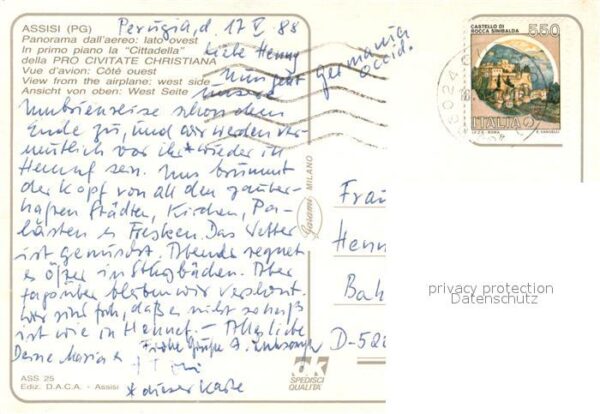 ASSISI (PG)
Panorama dall'aereo: lato ovest
In primo piano la "Cittadella"
della PRO CIVITATE CHRISTIANA
Vue d'avion: Côté ouest
View from the airplane: west side
Ansicht von oben: West Seite
Perugia, d. 17 V. 88
Liebe Henny
Nun geht
unsere
Umbrienreise schon dem
Ende zu, und wir werden ver-
mutlich vor ihr* wieder in
Hennef sein. Uns brummt
der Kopf von all den zauber-
haften Städten, Kirchen, Pa-
lästen & Fresken. Das Wetter
ist gemischt. Abends regnet
es öfter in Sturzbächen. Aber
tagsüber bleiben wir verschont.
Wir sind froh, daß es nicht so heiß
ist wie in Hennef. – Alles liebe
Deine Maria &
Frohe Grüße
* dieser Karte
germania
occid.
CASTELLO DI
ROCCA SINIBALDA
550
ITALIA
I.P.Z.S. - ROMA
E. VANGELLI
Garami MILANO
Frau
Henn
Bah
D-52
privacy protection
Datenschutz
ASS 25
Ediz. D.A.C.A. - Assisi
SPEDISCI
QUALITÀ